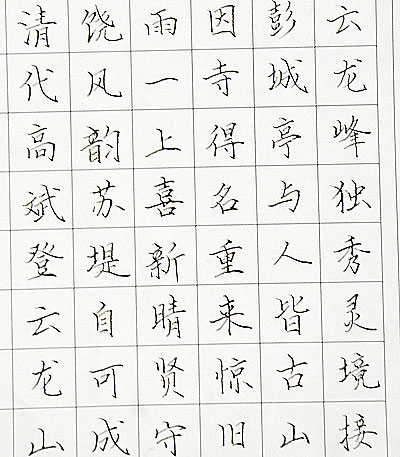 云龙峰独秀灵境接
彭城亭与人皆古山
因寺得名重来惊旧
雨一上喜新晴贤守
饶风韵苏堤自可成
清代高斌登云龙山